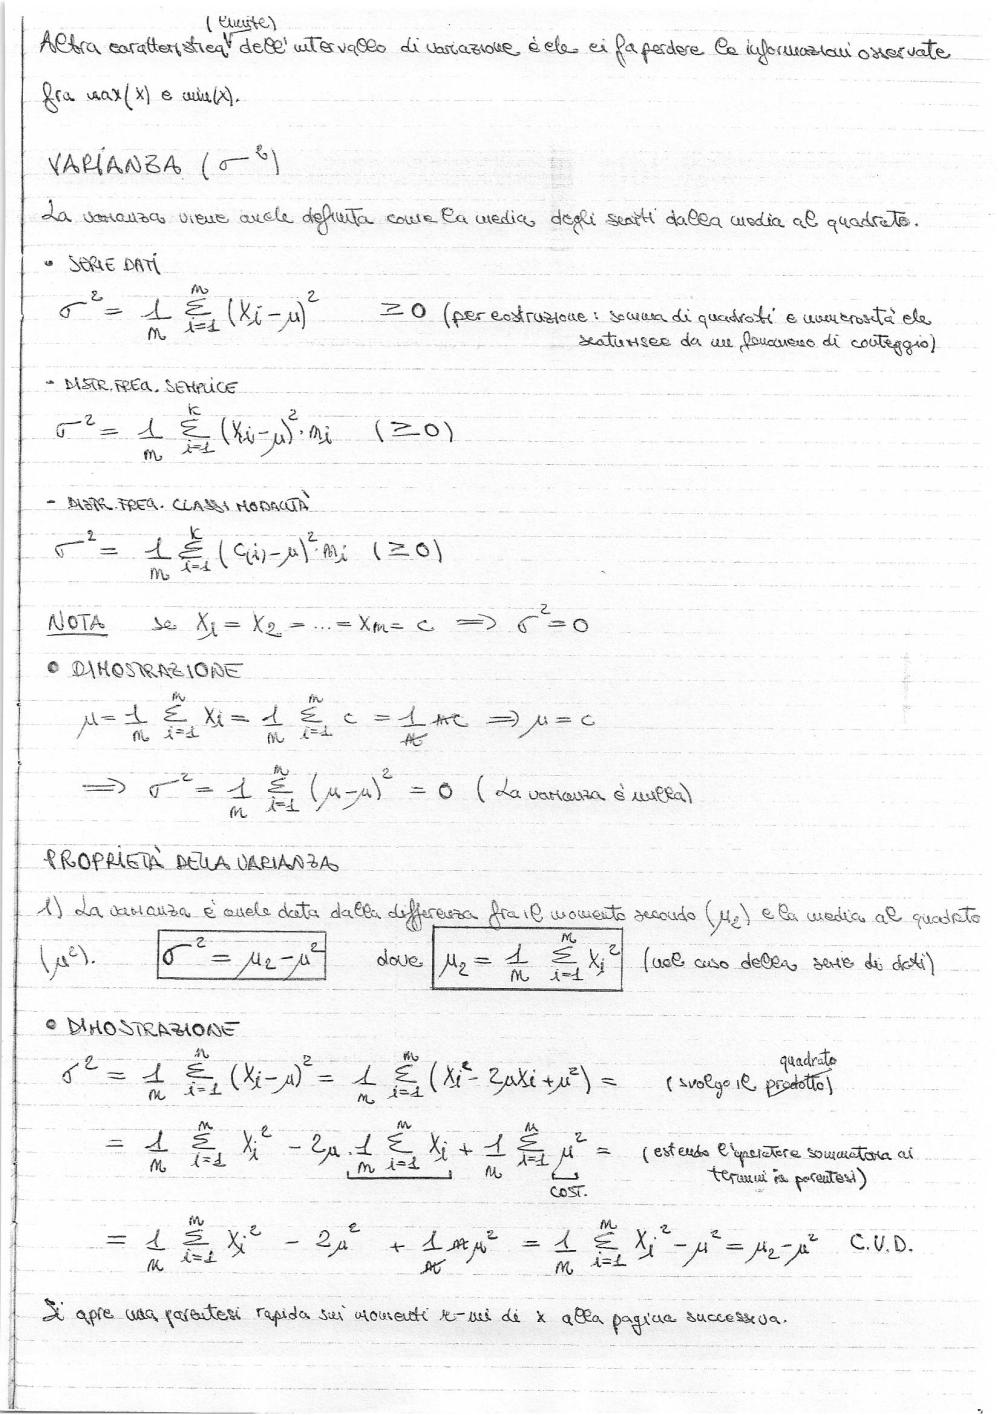 (limite)
Altra caratteristica dell'intervallo di variazione è che ci fa perdere le informazioni osservate
fra max(x) e min(x).
VARIANZA (σ²)
La varianza viene anche definita come la media degli scarti dalla media al quadrato.
• SERIE DATI
σ² = 1/n Σ_{i=1}^{n} (xi-μ)² ≥0 (per costruzione: somma di quadrati e numerosità che
scaturisce da un fenomeno di conteggio)
- DISTR. FREQ. SEMPLICE
σ² = 1/n Σ_{i=1}^{K} (xi-μ)²·ni (≥0)
- DISTR. FREQ. CLASSI MODALITÀ
σ² = 1/n Σ_{i=1}^{K} (c(i)-μ)²·ni (≥0)
NOTA se x1 = x2 = ... = xn = c => σ²=0
• DIMOSTRAZIONE
μ = 1/n Σ_{i=1}^{n} xi = 1/n Σ_{i=1}^{n} c = 1/n nc => μ = c
=> σ² = 1/n Σ_{i=1}^{n} (μ-μ)² = 0 (La varianza è nulla)
PROPRIETÀ DELLA VARIANZA
1) La varianza è anche data dalla differenza fra il momento secondo (μ2) e la media al quadrato
(μ²). σ² = μ2-μ² dove μ2 = 1/n Σ_{i=1}^{n} xi² (nel caso della serie di dati)
• DIMOSTRAZIONE
σ² = 1/n Σ_{i=1}^{n} (xi-μ)² = 1/n Σ_{i=1}^{n} (xi²-2μxi+μ²) = (svolgo il prodotto) quadrato
= 1/n Σ_{i=1}^{n} xi² - 2μ · 1/n Σ_{i=1}^{n} xi + 1/n Σ_{i=1}^{n} μ² = (estendo l'operatore sommatoria ai
termini in parentesi)
COST.
= 1/n Σ_{i=1}^{n} xi² - 2μ² + 1/n nμ² = 1/n Σ_{i=1}^{n} xi² - μ² = μ2-μ² C.V.D.
Si apre una parentesi rapida sui momenti r-mi di x alla pagina successiva.